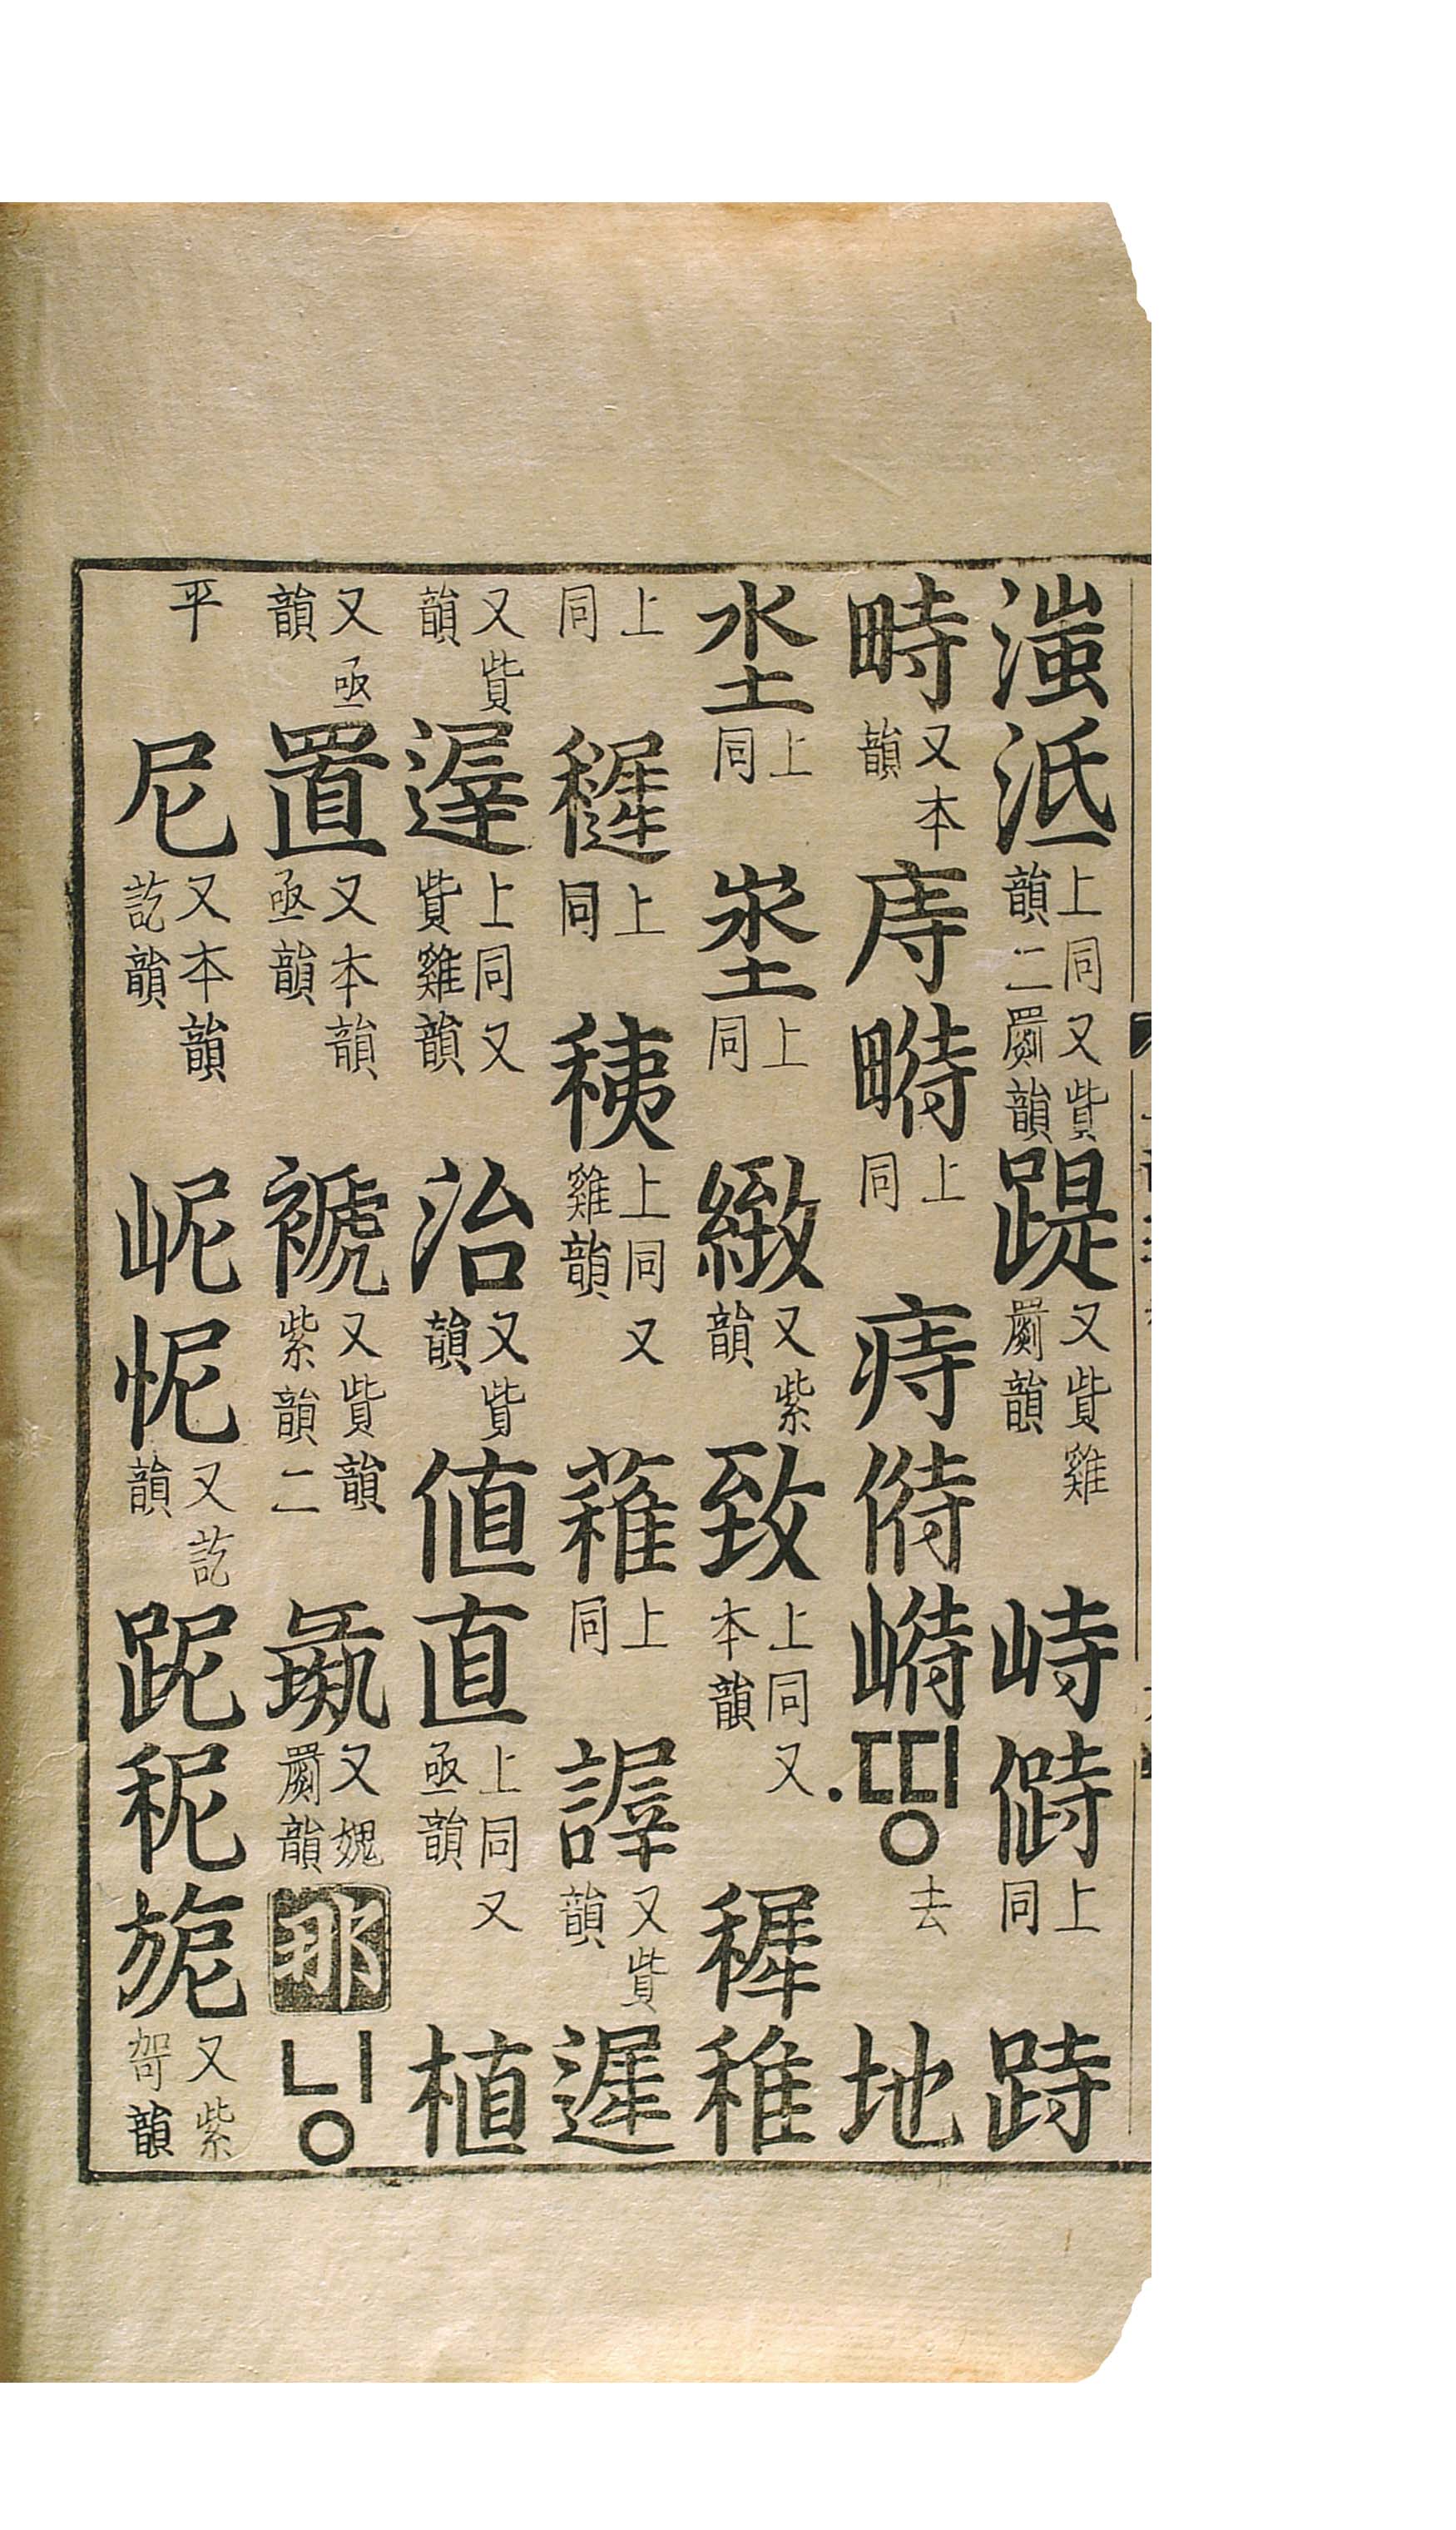 滍泜上同又貲韻二罽韻踶又貲雞罽韻峙上同跱
畤又本韻庤上同痔偫띵去地
坔上同埊上同緻又紫韻致上同又本韻稺稚
上同上同上同又雞韻上同謘又貲韻遲
又貲韻遟上同又貲雞韻治又貲韻値直上同又亟韻植
又亟韻置又本韻亟韻褫又貲韻紫韻二彘又媿罽韻那닝
平尼又本韻訖韻怩又訖韻跜秜旎又紫哿韻